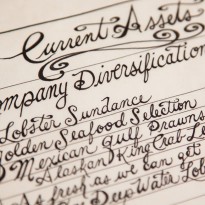 Current Assets
Company Diversification
Lobster Sundance
Golden Seafood Selection
Mexican Gulf Prawns
Alaskan King Crab Le
As fresh as we can get
Deep Water Lob